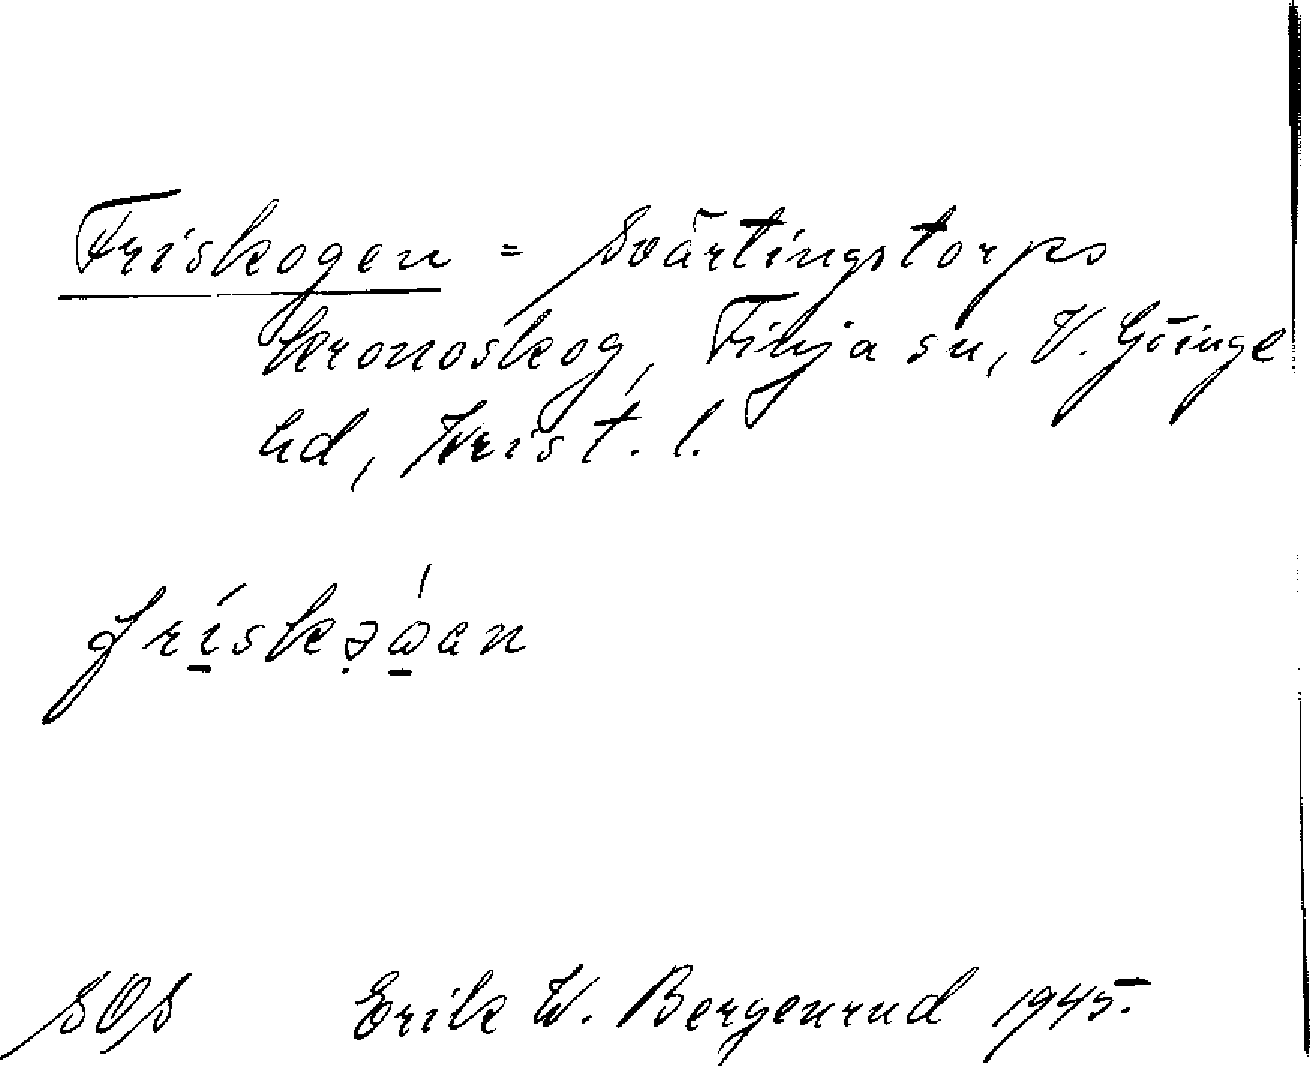 Friskogen = Svärtingstorps
Kronoskog, Finja sn, V. Göinge
hd, Krist. l.
SOS Erik W. Bergenrud 1945.